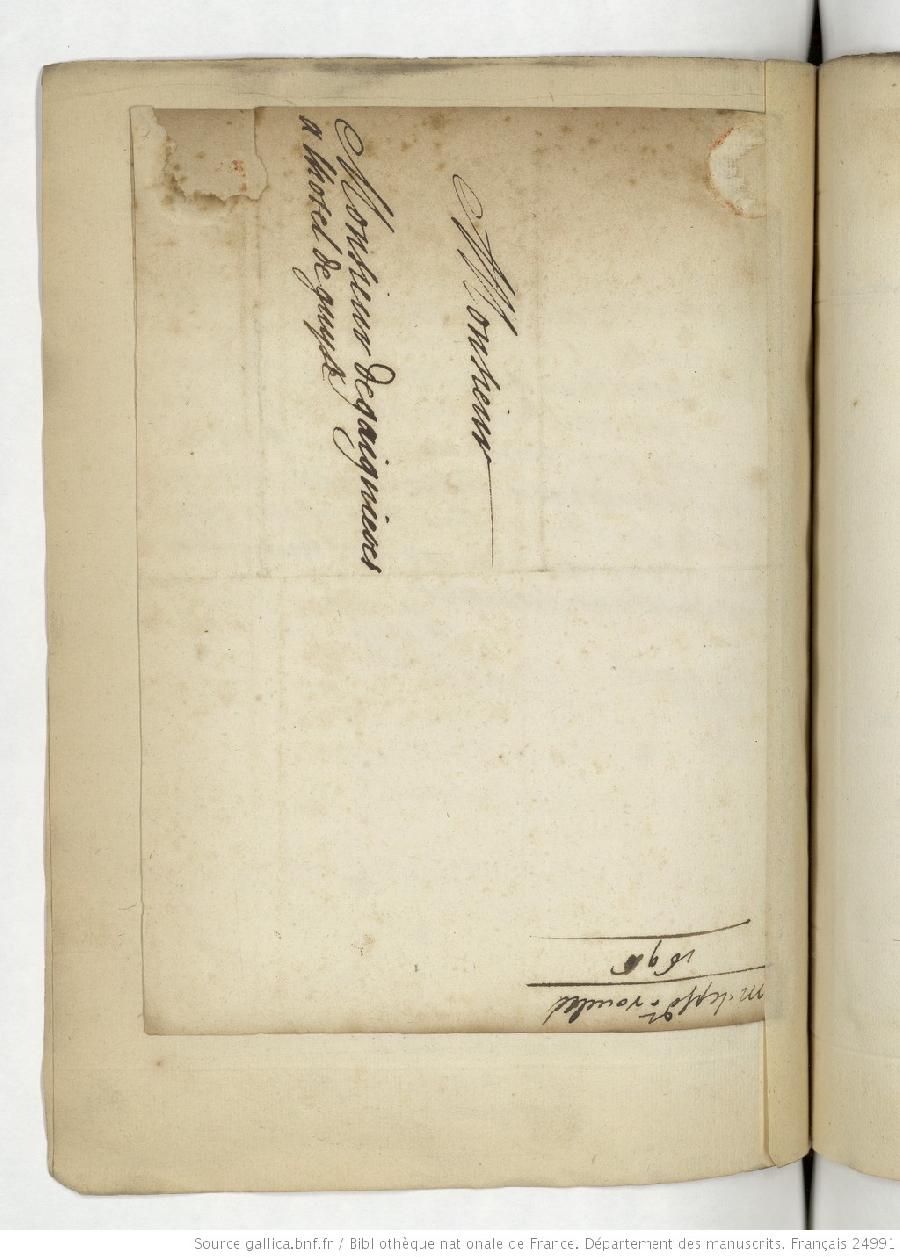 Monsieur
Monsieur de gaignieres
a lhotel de guyse
1696
Source gallica.bnf.fr / Bibliothèque nationale de France. Département des manuscrits. Français 24991